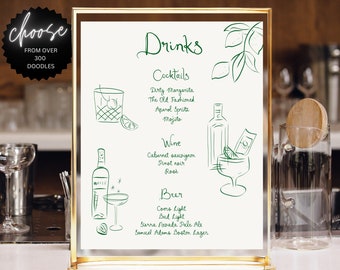 choose
FROM OVER
300
DOODLES
Drinks
Cocktails
Dirty Margarita
The Old Fashioned
Aperol Spritz
Mojito
Wine
Cabernet sauvignon
Pinot noir
Rosé
Beer
Coors Light
Bud Light
Sierra Nevada Pale Ale
Samuel Adams Boston Lager